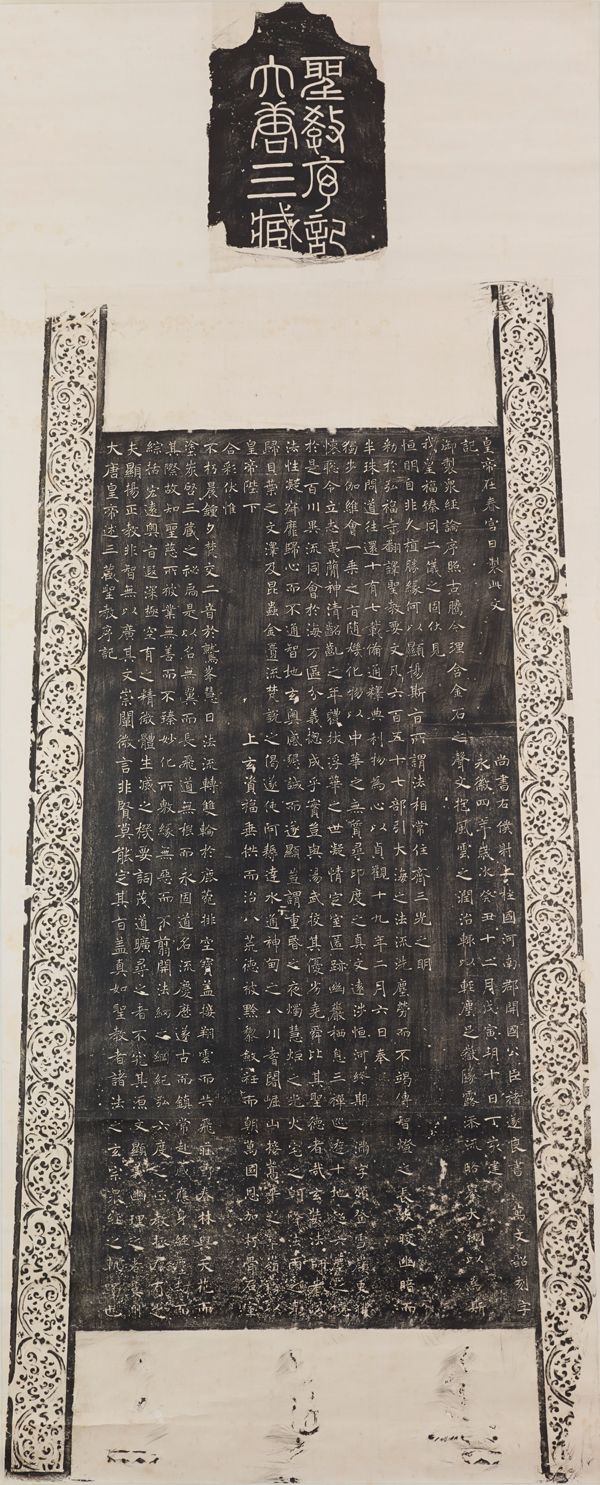 大唐三藏
聖教序記
大唐皇帝述三藏聖教序記
夫顯揚正教非智無以廣其文崇闡微言非賢莫能定其旨蓋真如聖教者諸法之玄宗眾經之軌躅也
綜括宏遠奧旨遐深極空有之精微體生滅之機要詞茂道曠尋之者不究其源文顯義幽理之者莫測
其際故知聖慈所被業無善而不臻妙化所敷緣無惡而不翦開法網之綱紀弘六度之正教拯群有之
塗炭啓三藏之秘扃是以名無翼而長飛道無根而永固道名流慶歷遂古而鎮常赴感應身經塵劫而
不朽晨鍾夕梵交二音於鷲峯慧日法流轉雙輪於鹿菀排空寶蓋接翔雲而共飛莊野春林與天花而
合彩伏惟
皇帝陛下 上玄資福垂拱而治八荒德被黔黎斂衽而朝萬國恩加朽骨石室
歸貝葉之文澤及昆蟲金匱流梵說之偈遂使阿耨達水通神甸之八川耆闍崛山接嵩華之翠嶺竊以
法性凝寂靡歸心而不通智地玄奧感懇誠而遂顯豈謂重昏之夜燭慧炬之光火宅之朝降法雨之澤
於是百川異流同會於海万區分義揔成乎實豈與湯武校其優劣堯舜比其聖德者哉玄奘法師者夙
懷聡令立志夷簡神清齠齔之年體拔浮華之世凝情定室匿跡幽巖栖息三禪巡遊十地超六塵之境
獨步伽維會一乘之旨隨機化物以中華之無質尋印度之真文遠涉恒河終期滿字頻登雪嶺更獲
半珠問道往還十有七載備通釋典利物為心以貞觀十九年二月六日奉
勅於弘福寺翻譯聖教要文凡六百五十七部引大海之法流洗塵勞而不竭傳智燈之長焰皎幽暗而
恒明自非久植勝緣何以顯揚斯旨所謂法相常住齊三光之明
我皇福臻同二儀之固伏見
御製眾經論序照古騰今理含金石之聲文抱風雲之潤治輒以輕塵足嶽墜露添流略舉大綱以為斯
記
永徽四年歲次癸丑十二月戊寅朔十日丁亥建
皇帝在春宮日製此文
尚書右僕射上柱國河南郡開國公臣褚遂良書 萬文韶刻字